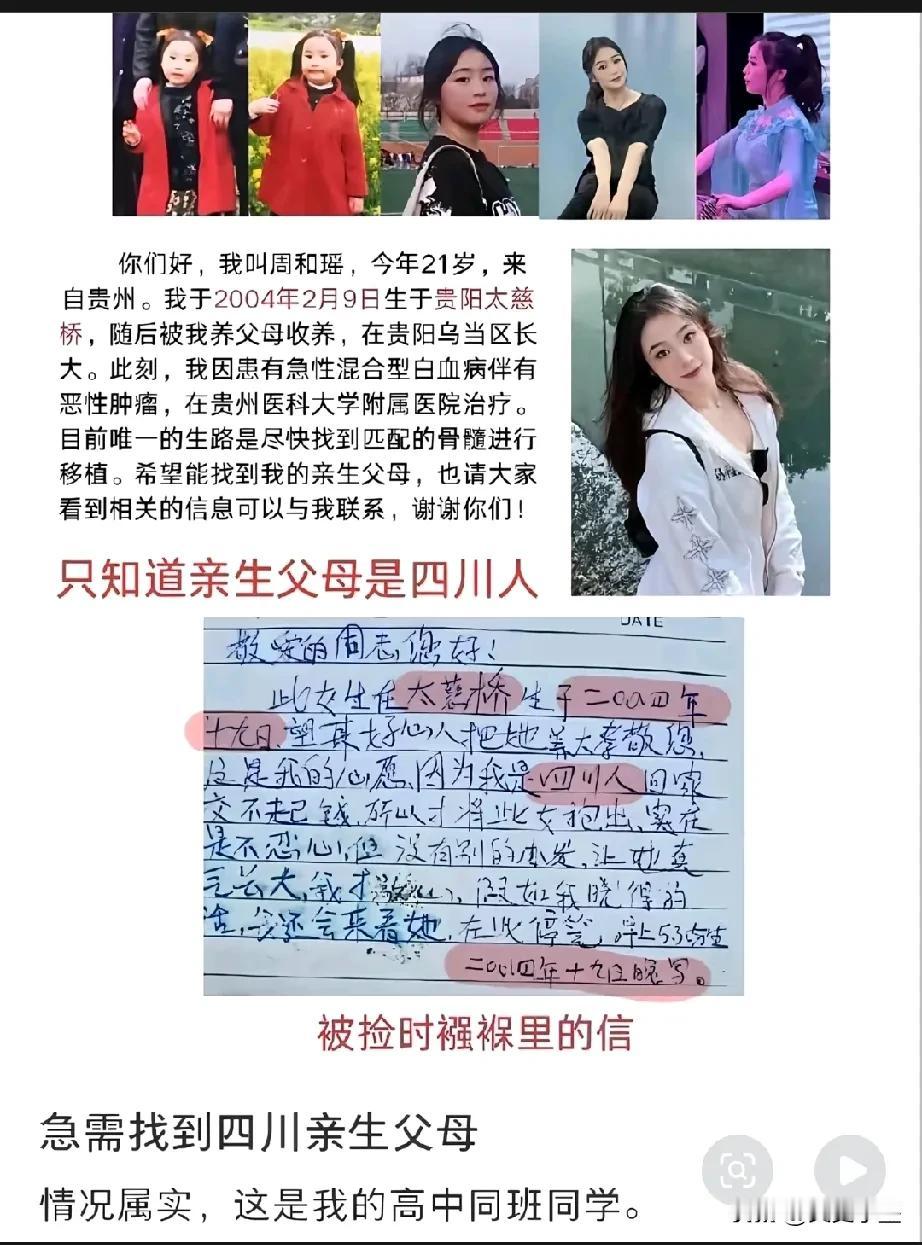 你们好，我叫周和瑶，今年21岁，来
自贵州。我于2004年2月9日生于贵阳太慈
桥，随后被我养父母收养，在贵阳乌当区长
大。此刻，我因患有急性混合型白血病伴有
恶性肿瘤，在贵州医科大学附属医院治疗。
目前唯一的生路是尽快找到匹配的骨髓进行
移植。希望能找到我的亲生父母，也请大家
看到相关的信息可以与我联系，谢谢你们！
只知道亲生父母是四川人
DATE
敬爱的同志您好！
此女生在太慈桥生于二〇〇四年
十九日，望好心人把她养大孝敬您，
这是我的心愿，因为我是四川人回家
交不起钱，所以才将此女抱出，实在
是不忍心，但没有别的办发，让她真
长大，我才，假如我晓得的
话，我还会来看她，在此停笔，
二〇〇四年十九日晚写。
被捡时襁褓里的信
急需找到四川亲生父母
情况属实，这是我的高中同班同学。